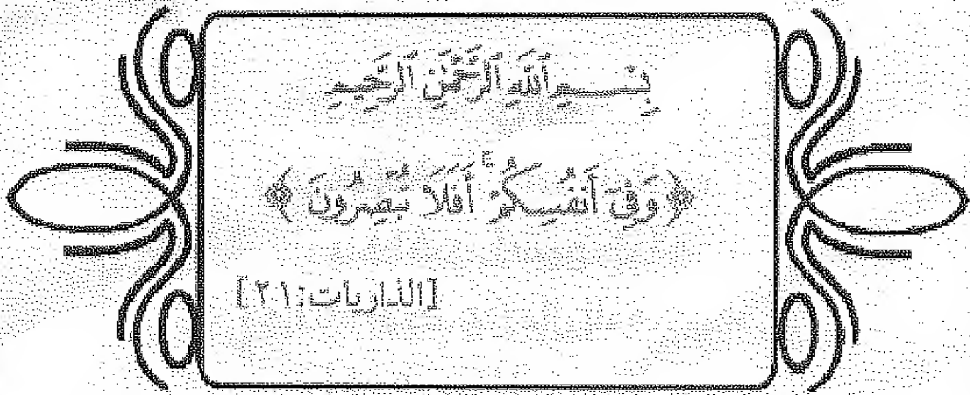 بِسْمِ ٱللَّهِ ٱلرَّحْمَٰنِ ٱلرَّحِيمِ
﴿ وَفِىٓ أَنفُسِكُمْ ۚ أَفَلَا تُبْصِرُونَ ﴾
[الذاريات: ٢١]